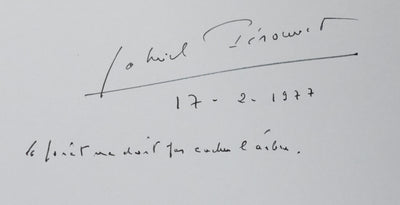 Gabriel
17 - 2 - 1977
la forêt ne doit pas cacher l'arbre.